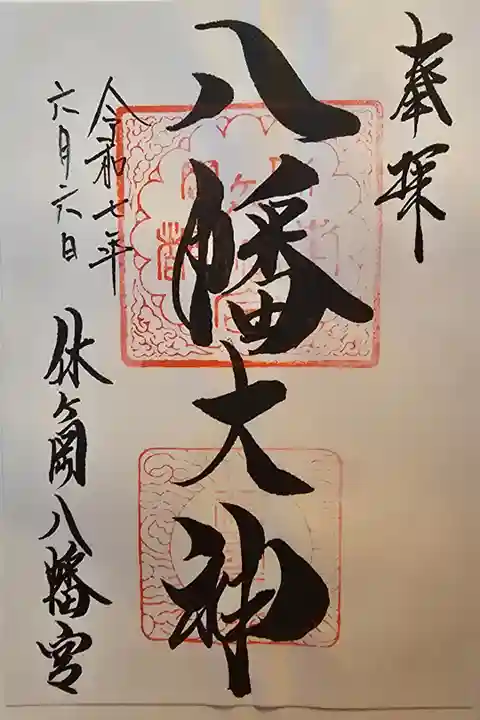 奉拝
八幡大神
令和七年
六月六日
休ヶ岡八幡宮